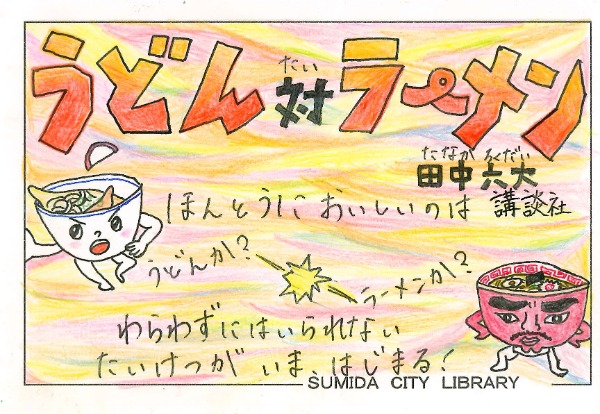 うどん対ラーメン
たい
たなか ろくだい
田中六大
講談社
ほんとうにおいしいのは
うどんか?
ラーメンか?
わらわずにはいられない
たいけつがいま、はじまる!
SUMIDA CITY LIBRARY